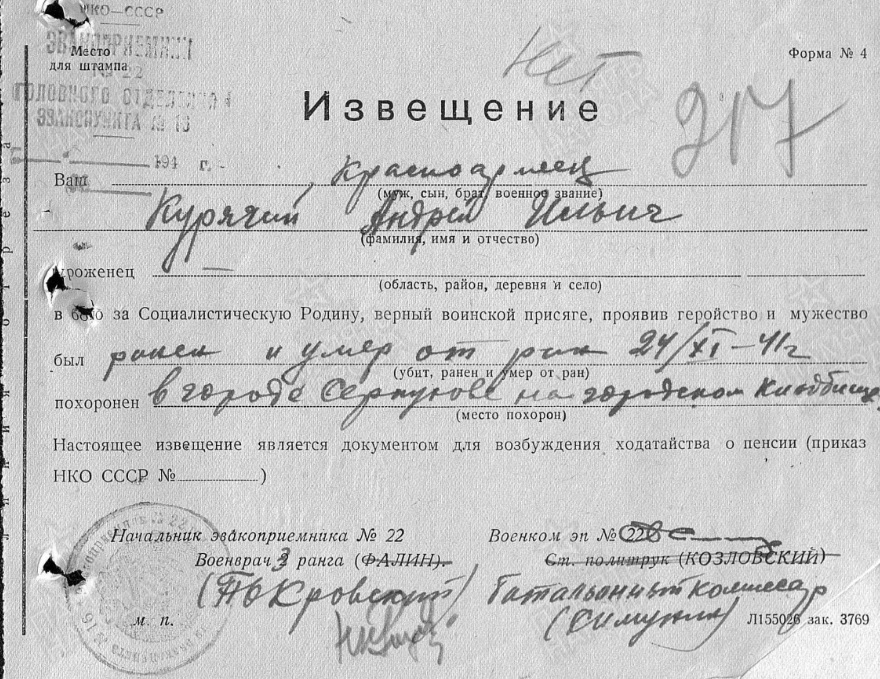 НКО—СССР
ЭВАКОПРИЕМНИК
Место
для штампа
№ 22
ГОЛОВНОГО ОТДЕЛЕНИЯ
ЭВАКОПУНКТА №
194 г.
Нет
Форма № 4
Извещение
217
Ваш Красноармеец
(муж, сын, брат, военное звание)
Курячий Андрей Ильич
(фамилия, имя и отчество)
уроженец
(область, район, деревня и село)
в бою за Социалистическую Родину, верный воинской присяге, проявив геройство и мужество
был ранен и умер от ран 24/XI-41г
(убит, ранен и умер от ран)
похоронен в городе Серпухове на городском кладбище
(место похорон)
Настоящее извещение является документом для возбуждения ходатайства о пенсии (приказ
НКО СССР № )
Начальник эвакоприемника № 22
Военком эп № 22
Военврач 3 ранга (ФАЛИН).
Ст. политрук (КОЗЛОВСКИЙ)
Батальонный комиссар
м. п.
Л155026 зак. 3769